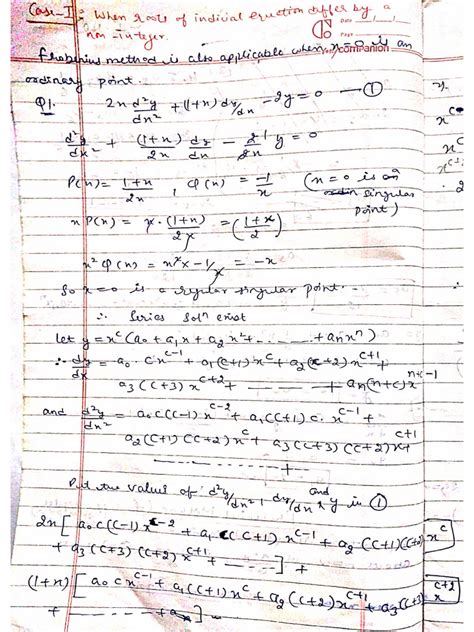 Case-I : When roots of indicial equation differ by a
non-integer.
Date
Page
companion
Frobenius method is also applicable when x=0 is an
ordinary point.
Q1. 2x d²y/dx² + (1+x) dy/dx - 2y = 0 — ①
d²y/dx² + (1+x)/2x dy/dx - 2/2x y = 0
P(x) = (1+x)/2x , Q(x) = -1/x (x=0 is
singular
point)
x P(x) = x · (1+x)/2x = (1+x)/2
x² Q(x) = x² x -1/x = -x
So x=0 is a regular singular point.
∴ Series solⁿ exist
let y = x^c (a₀ + a₁x + a₂x² + ........ + aₙxⁿ)
∴ dy/dx = a₀ . c x^(c-1) + a₁(c+1)x^c + a₂(c+2)x^(c+1) +
a₃(c+3)x^(c+2) + ------- + aₙ(n+c)x^(n+c-1)
and d²y/dx² = a₀c(c-1)x^(c-2) + a₁(c+1)c. x^(c-1) +
a₂(c+1)(c+2)x^c + a₃(c+3)(c+2)x^(c+1) +
---------- +
Put the values of d²y/dx², dy/dx and y in ①
2x [ a₀c(c-1)x^(c-2) + a₁ c(c+1) x^(c-1) + a₂(c+1)(c+2)x^c
+ a₃(c+3)(c+2)x^(c+1) + ------ ] +
(1+x) [ a₀ c x^(c-1) + a₁(c+1)x^c + a₂(c+2)x^(c+1) + a₃(c+3) x^(c+2)
+ ------- + ] -